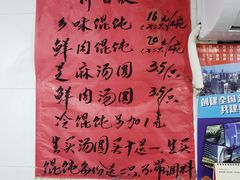 乡味馄饨 16元/碗
鲜肉馄饨 20元/碗
芝麻汤圆 3.5/只
鲜肉汤圆 3.5/只
冷馄饨另加1元
生买汤圆买十送一 生买
馄饨每份送二只 不带调料
创建全国
共建